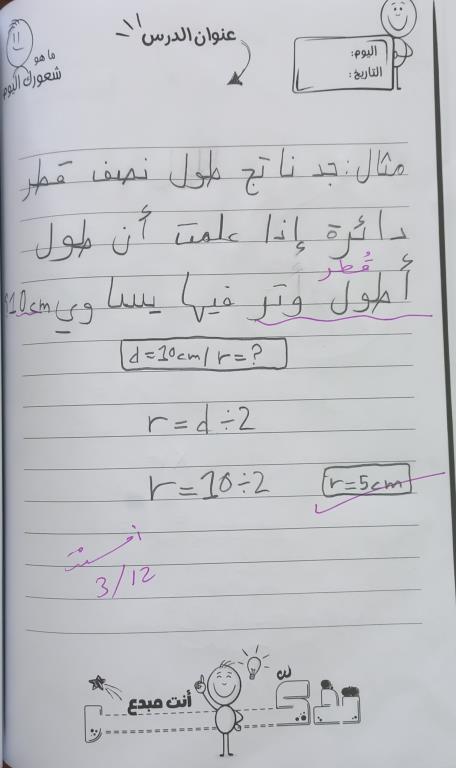 عنوان الدرس
اليوم:
التاريخ:
ما هو
شعورك اليوم
مثال: جد ناتج طول نصف قطر
دائرة إذا علمت أن طول
قُطر
أطول وتر فيها يساوي 10cm؟
d=10cm/r=?
r=d÷2
r=10÷2
r=5cm
أحسنت
3/12
أنت مبدع
تذكر